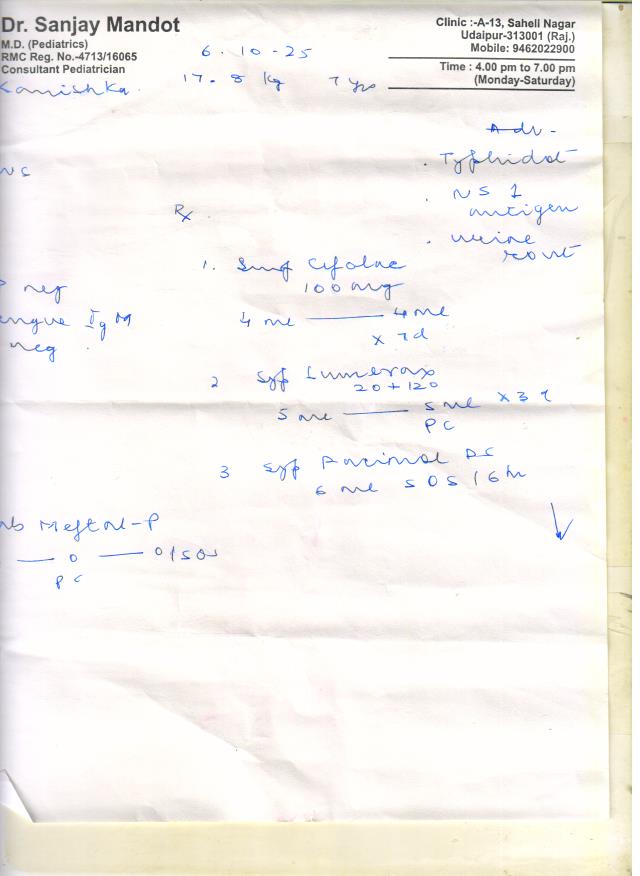 Dr. Sanjay Mandot
M.D. (Pediatrics)
RMC Reg. No.-4713/16065
Consultant Pediatrician
Clinic :-A-13, Saheli Nagar
Udaipur-313001 (Raj.)
Mobile: 9462022900
Time : 4.00 pm to 7.00 pm
(Monday-Saturday)
6.10-25
Kanishka. 17.8 kg 7 yrs
Adv-
. Typhidot
. NS 1
antigen
. urine
rout
NS
Rx
neg
engue IgM
neg
1. Cefolac
100 mg
4 ml —— 4 ml
x 7d
2 Syp Lumerax
20 + 120
5 ml —— 5 ml x 3
PC
3 Syp Pacimol DS
6 ml SOS / 6 hr
ab Meftal-P
—— 0 —— 0/SOS
PC